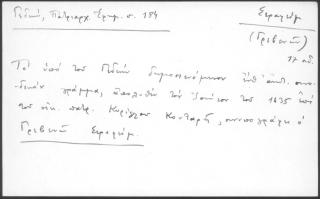 Γεδεών, Πατριαρχ. Ἐφημ. σ. 184
Σεραφείμ
(Γρεβενῶν)
17 αἰ.
Τὸ ὑπὸ τοῦ Γεδεὼν δημοσιευόμενον ὑπ' ἀριθ. συνο-
δικὸν γράμμα, ἀπολυθὲν τὸν Ἰούνιον τοῦ 1635 ὑπὸ
τοῦ οἰκ. πατρ. Κυρίλλου Κονταρῆ, συνυπογράφει ὁ
Γρεβενῶν Σεραφείμ.